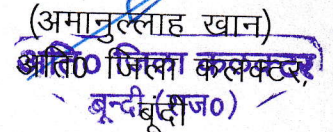 (अमानुल्लाह खान)
अति0 जिला कलक्टर,
बून्दी (राज0)
बूंदी